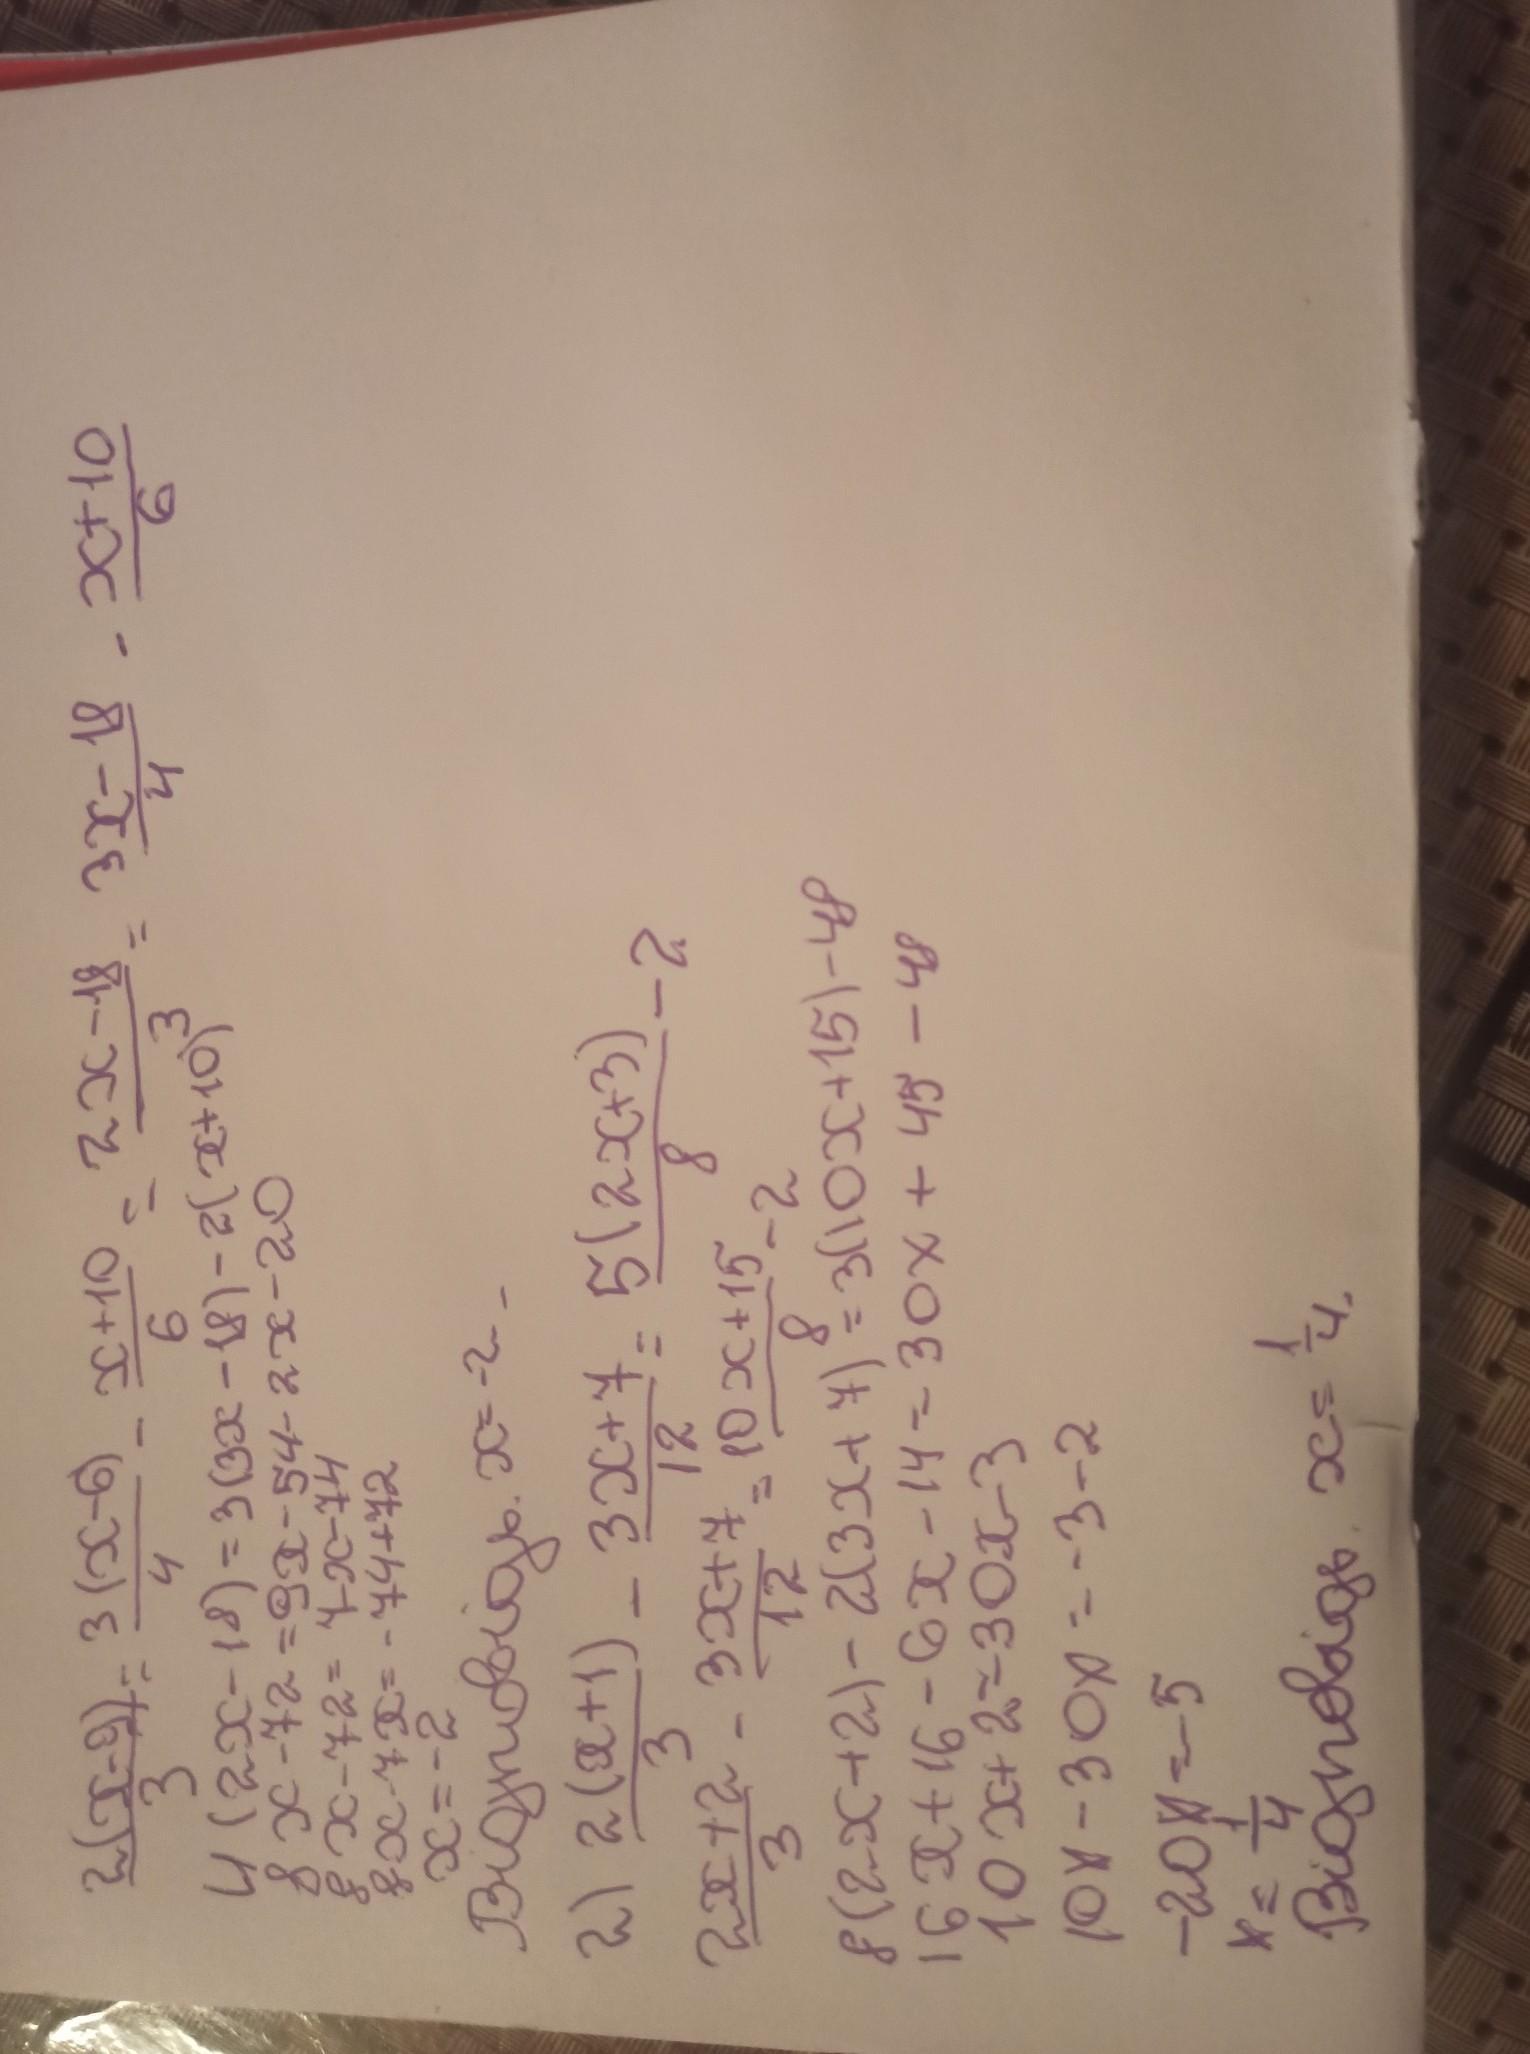 2(x-9)/3 = 3(x-6)/4 - x+10/6 = 2x-18/3 = 3x-18/4 - x+10/6
4(2x-18)=3(3x-18)-2(x+10)
8x-72=9x-54-2x-20
8x-72=7x-74
8x-7x=-74+72
x=-2
Відповідь. x=-2.
2) 2(x+1)/3 - 3x+7/12 = 5(2x+3)/8 - 2
2x+2/3 - 3x+7/12 = 10x+15/8 - 2
8(2x+2)-2(3x+7)=3(10x+15)-48
16x+16-6x-14=30x+45-48
10x+2=30x-3
10x-30x=-3-2
-20x=-5
x=1/4
Відповідь. x=1/4.